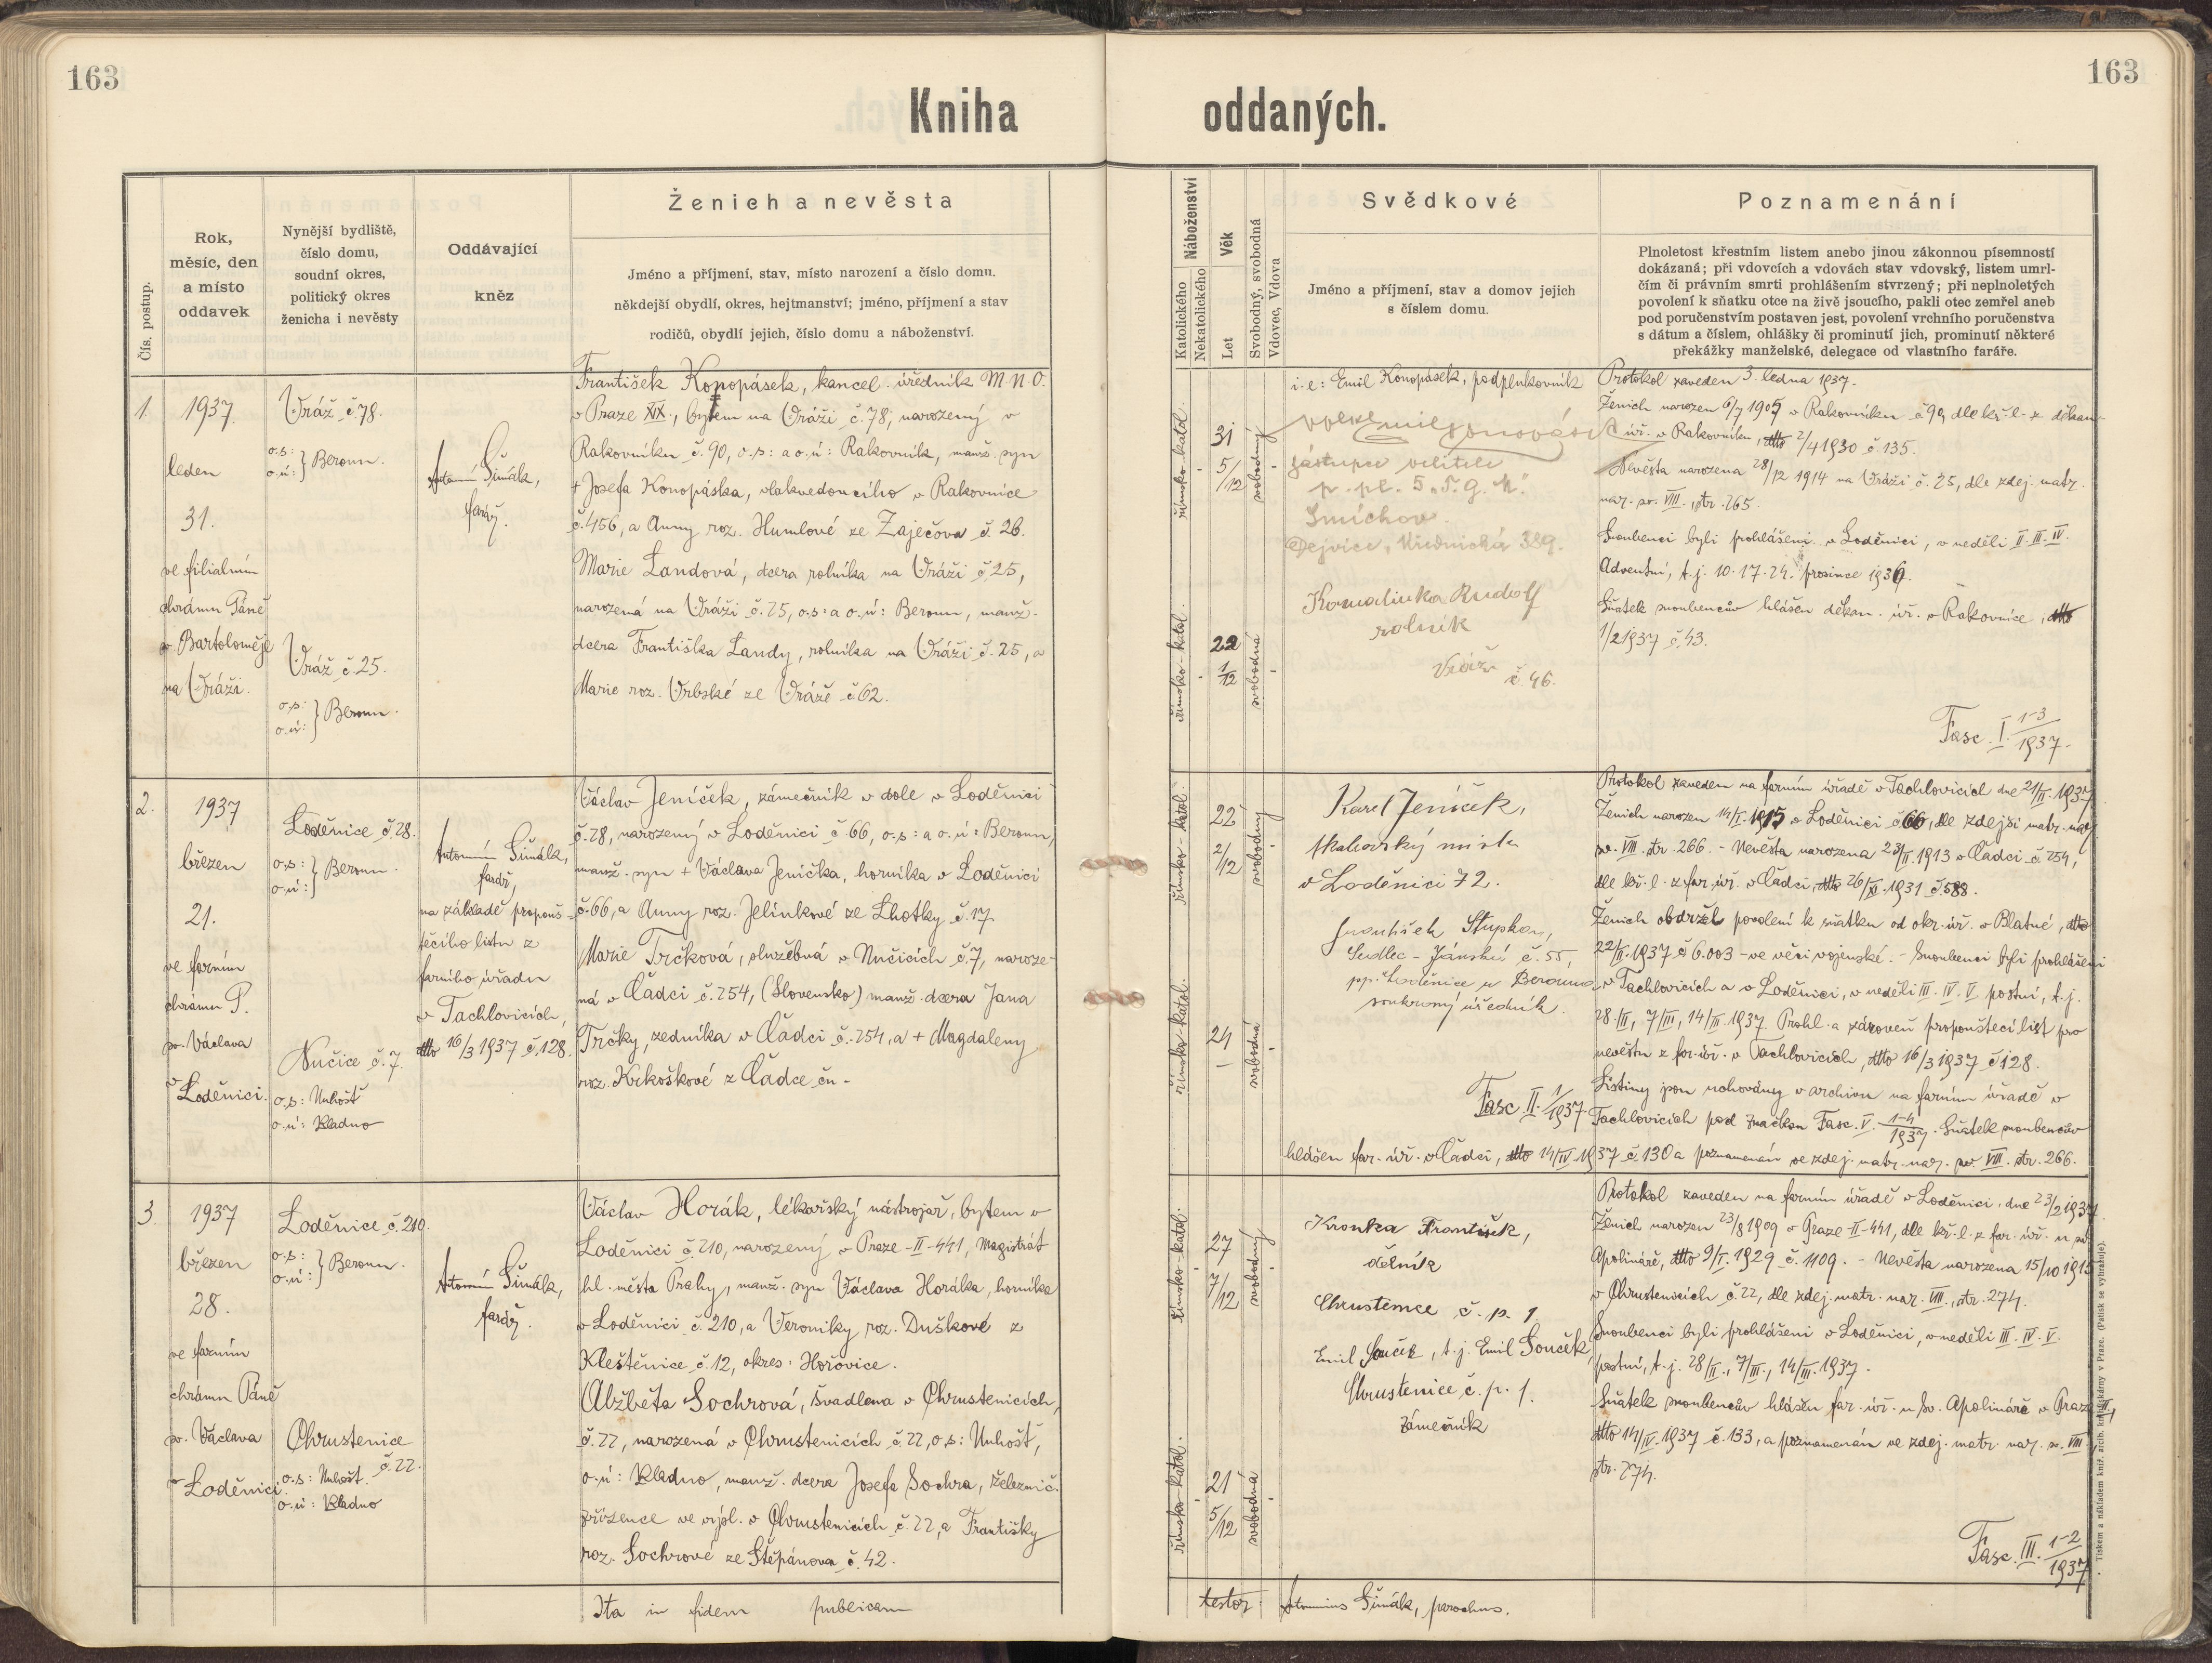 163
163
Kniha oddaných.
Čís. postup.
Rok,
měsíc, den
a místo
oddavek
Nynější bydliště,
číslo domu,
soudní okres,
politický okres
ženicha i nevěsty
Oddávající
kněz
Ženich a nevěsta
Jméno a příjmení, stav, místo narození a číslo domu.
někdejší obydlí, okres, hejtmanství; jméno, příjmení a stav
rodičů, obydlí jejich, číslo domu a náboženství.
Náboženství
Katolického
Nekatolického
Věk
Let
Svobodný, svobodná
Vdovec, Vdova
Svědkové
Jméno a příjmení, stav a domov jejich
s číslem domu.
Poznamenání
Plnoletost křestním listem anebo jinou zákonnou písemností
dokázaná; při vdovcích a vdovách stav vdovský, listem umrl-
čím či právním smrti prohlášením stvrzený; při neplnoletých
povolení k sňatku otce na živě jsoucího, pakli otec zemřel aneb
pod poručenstvím postaven jest, povolení vrchního poručenstva
s dátum a číslem, ohlášky či prominutí jich, prominutí některé
překážky manželské, delegace od vlastního faráře.
1.
1937
leden
31.
ve filialním
chrámu Páně
sv Bartoloměje
na Vráži.
Vráž č. 78.
o.s:
o.ú: } Beroun.
Vráž č. 25.
o.s:
o.ú: } Beroun.
Antonín Šimák,
farář.
František Konopásek, kancel. úředník M.N.O.
v Praze XIX., bytem na Vráži č. 78, narozený v
Rakovníku č. 90, o.s: a o.ú: Rakovník, manž. syn
+ Josefa Konopáska, vlakvedoucího v Rakovníce
č. 456, a Anny roz. Humlové ze Zaječova č. 26.
Marie Landová, dcera rolníka na Vráži č 25,
narozená na Vráži č. 25, o.s: a o.ú: Beroun, manž.
dcera Františka Landy, rolníka na Vráži č. 25, a
Marie roz. Vrbské ze Vráže č 62.
římsko-katol.
31
5/12
svobodný
římsko-katol.
22
1/12
svobodná
i. e: Emil Konopásek, podplukovník
zástupce velitele
p. pl. 5 "T. G. M."
Smíchov.
Dejvice, Úřednická 389.
Komalinka Rudolf
rolník
Vráž
č. 46.
Protokol zaveden 3. ledna 1937.
Ženich narozen 6/7 1905 v Rakovníku č 90, dle kř. l. z děkan.
úř. v Rakovníku, dtto 2/4 1930 č. 135.
Nevěsta narozena 28/12 1914 na Vráži č. 25, dle zdej. matr.
nar. sv. VIII., str. 265.
Snoubenci byli prohlášeni v Loděnici, v neděli II. III. IV.
Adventní, t.j. 10. 17. 24. prosince 1936.
Sňatek snoubencův hlášen děkan. úř. v Rakovníce, dtto
1/2 1937 č. 43.
Fasc. I. 1-3/1937.
2.
1937
březen
21.
ve farním
chrámu P.
sv. Václava
v Loděnici.
Loděnice č. 28.
o.s:
o.ú: } Beroun.
Nučice č. 7.
o.s: Unhošť
o.ú: Kladno
Antonín Šimák,
farář,
na základě propouš-
těcího listu z
farního úřadu
v Tachlovicích,
dtto 16/3 1937 č. 128.
Václav Jeníček, zámečník v dole v Loděnici
č. 28, narozený v Loděnici č. 66, o.s: a o.ú: Beroun,
manž. syn + Václava Jeníčka, horníka v Loděnici
č. 66, a Anny roz. Jelínkové ze Lhotky č. 17.
Marie Trčková, služebná v Nučicích č. 7, naroze-
ná v Čadci č. 254, (Slovensko) manž. dcera Jana
Trčky, zedníka v Čadci č. 254, a + Magdaleny
roz. Krkoškové z Čadce čn -
římsko-katol.
22
2/12
svobodný
římsko-katol.
24
svobodná
Karel Jeníček,
v Loděnici 72.
František Stupka,
Sedlec - č. 55,
pp. Loděnice u Berouna,
soukromý úředník.
Fasc. II. 1/1937
Protokol zaveden na farním úřadě v Tachlovicích dne 21/II. 1937.
Ženich narozen 14/I. 1915 v Loděnici č 66, dle zdejší matr. nar.
sv. VIII. str. 266. - Nevěsta narozena 23/II. 1913 v Čadci č. 254,
dle kř. l. z far. úř. v Čadci, dtto 26/XI. 1931 č. 588.
Ženich obdržel povolení k sňatku od okr. úř. v Blatné, dtto
22/II. 1937 č 6.003 - ve věci vojenské. - Snoubenci byli prohlášeni
v Tachlovicích a v Loděnici, v neděli III. IV. V. postní, t.j.
28./II, 7/III, 14/III. 1937. Prohl. a zároveň propouštěcí list pro
nevěstu z far. úř. v Tachlovicích, dtto 16/3 1937 č 128.
Listiny jsou uchovány v archivu na farním úřadě v
Tachlovicích pod značkou Fasc. V. 1-4/1937. Sňatek snoubencův
hlášen far. úř. v Čadci, dtto 14/IV. 1937 č. 130 a poznamenán ve zdej. matr. nar. sv. VIII. str. 266.
3.
1937
březen
28.
ve farním
chrámu Páně
sv. Václava
v Loděnici.
Loděnice č. 210.
o.s:
o.ú: } Beroun.
Chrustenice
č. 22.
o.s: Unhošť
o.ú: Kladno
Antonín Šimák,
farář.
Václav Horák, lékařský nástrojař, bytem v
Loděnici č. 210, narozený v Praze-II-441, Magistrát
hl. města Prahy, manž. syn Václava Horáka, horníka
v Loděnici č. 210, a Veroniky roz. Duškové z
Kleštěnice č. 12, okres: Hořovice.
Alžběta Sochrová, švadlena v Chrustenicích,
č. 22, narozená v Chrustenicích č. 22, o.s: Unhošť,
o.ú: Kladno, manž. dcera Josefa Sochra, železnič.
zřízence ve výsl. v Chrustenicích č. 22, a Františky
roz. Sochrové ze Štěpánova č. 42.
římsko-katol.
27
7/12
svobodný
římsko-katol.
21
5/12
svobodná
Kronka František,
dělník
Chrustenice č. p. 1.
Emil Souček, t.j. Emil Souček,
Chrustenice č. p. 1.
zámečník
Protokol zaveden na farním úřadě v Loděnici, dne 23/2 1937.
Ženich narozen 23/8 1909 v Praze-II-441, dle kř. l. z far. úř. u sv.
Apolináře, dtto 9/I. 1929 č. 1109. - Nevěsta narozena 15/10 1915
v Chrustenicích č. 22, dle zdej. matr. nar. VIII., str. 274.
Snoubenci byli prohlášeni v Loděnici, v neděli III. IV. V.
postní, t.j. 28/II., 7/III., 14/III. 1937.
Sňatek snoubencův hlášen far. úř. u sv. Apolináře v Praze-II.,
dtto 14/IV. 1937 č. 133, a poznamenán ve zdej. matr. nar. sv. VIII.
str. 274.
Fasc. III. 1-2/1937.
Ita in fidem publicam
testor Antonius Šimák, parochus.
Tiskem a nákladem kníž. arcib. knihtiskárny v Praze. (Patisk se vyhražuje).